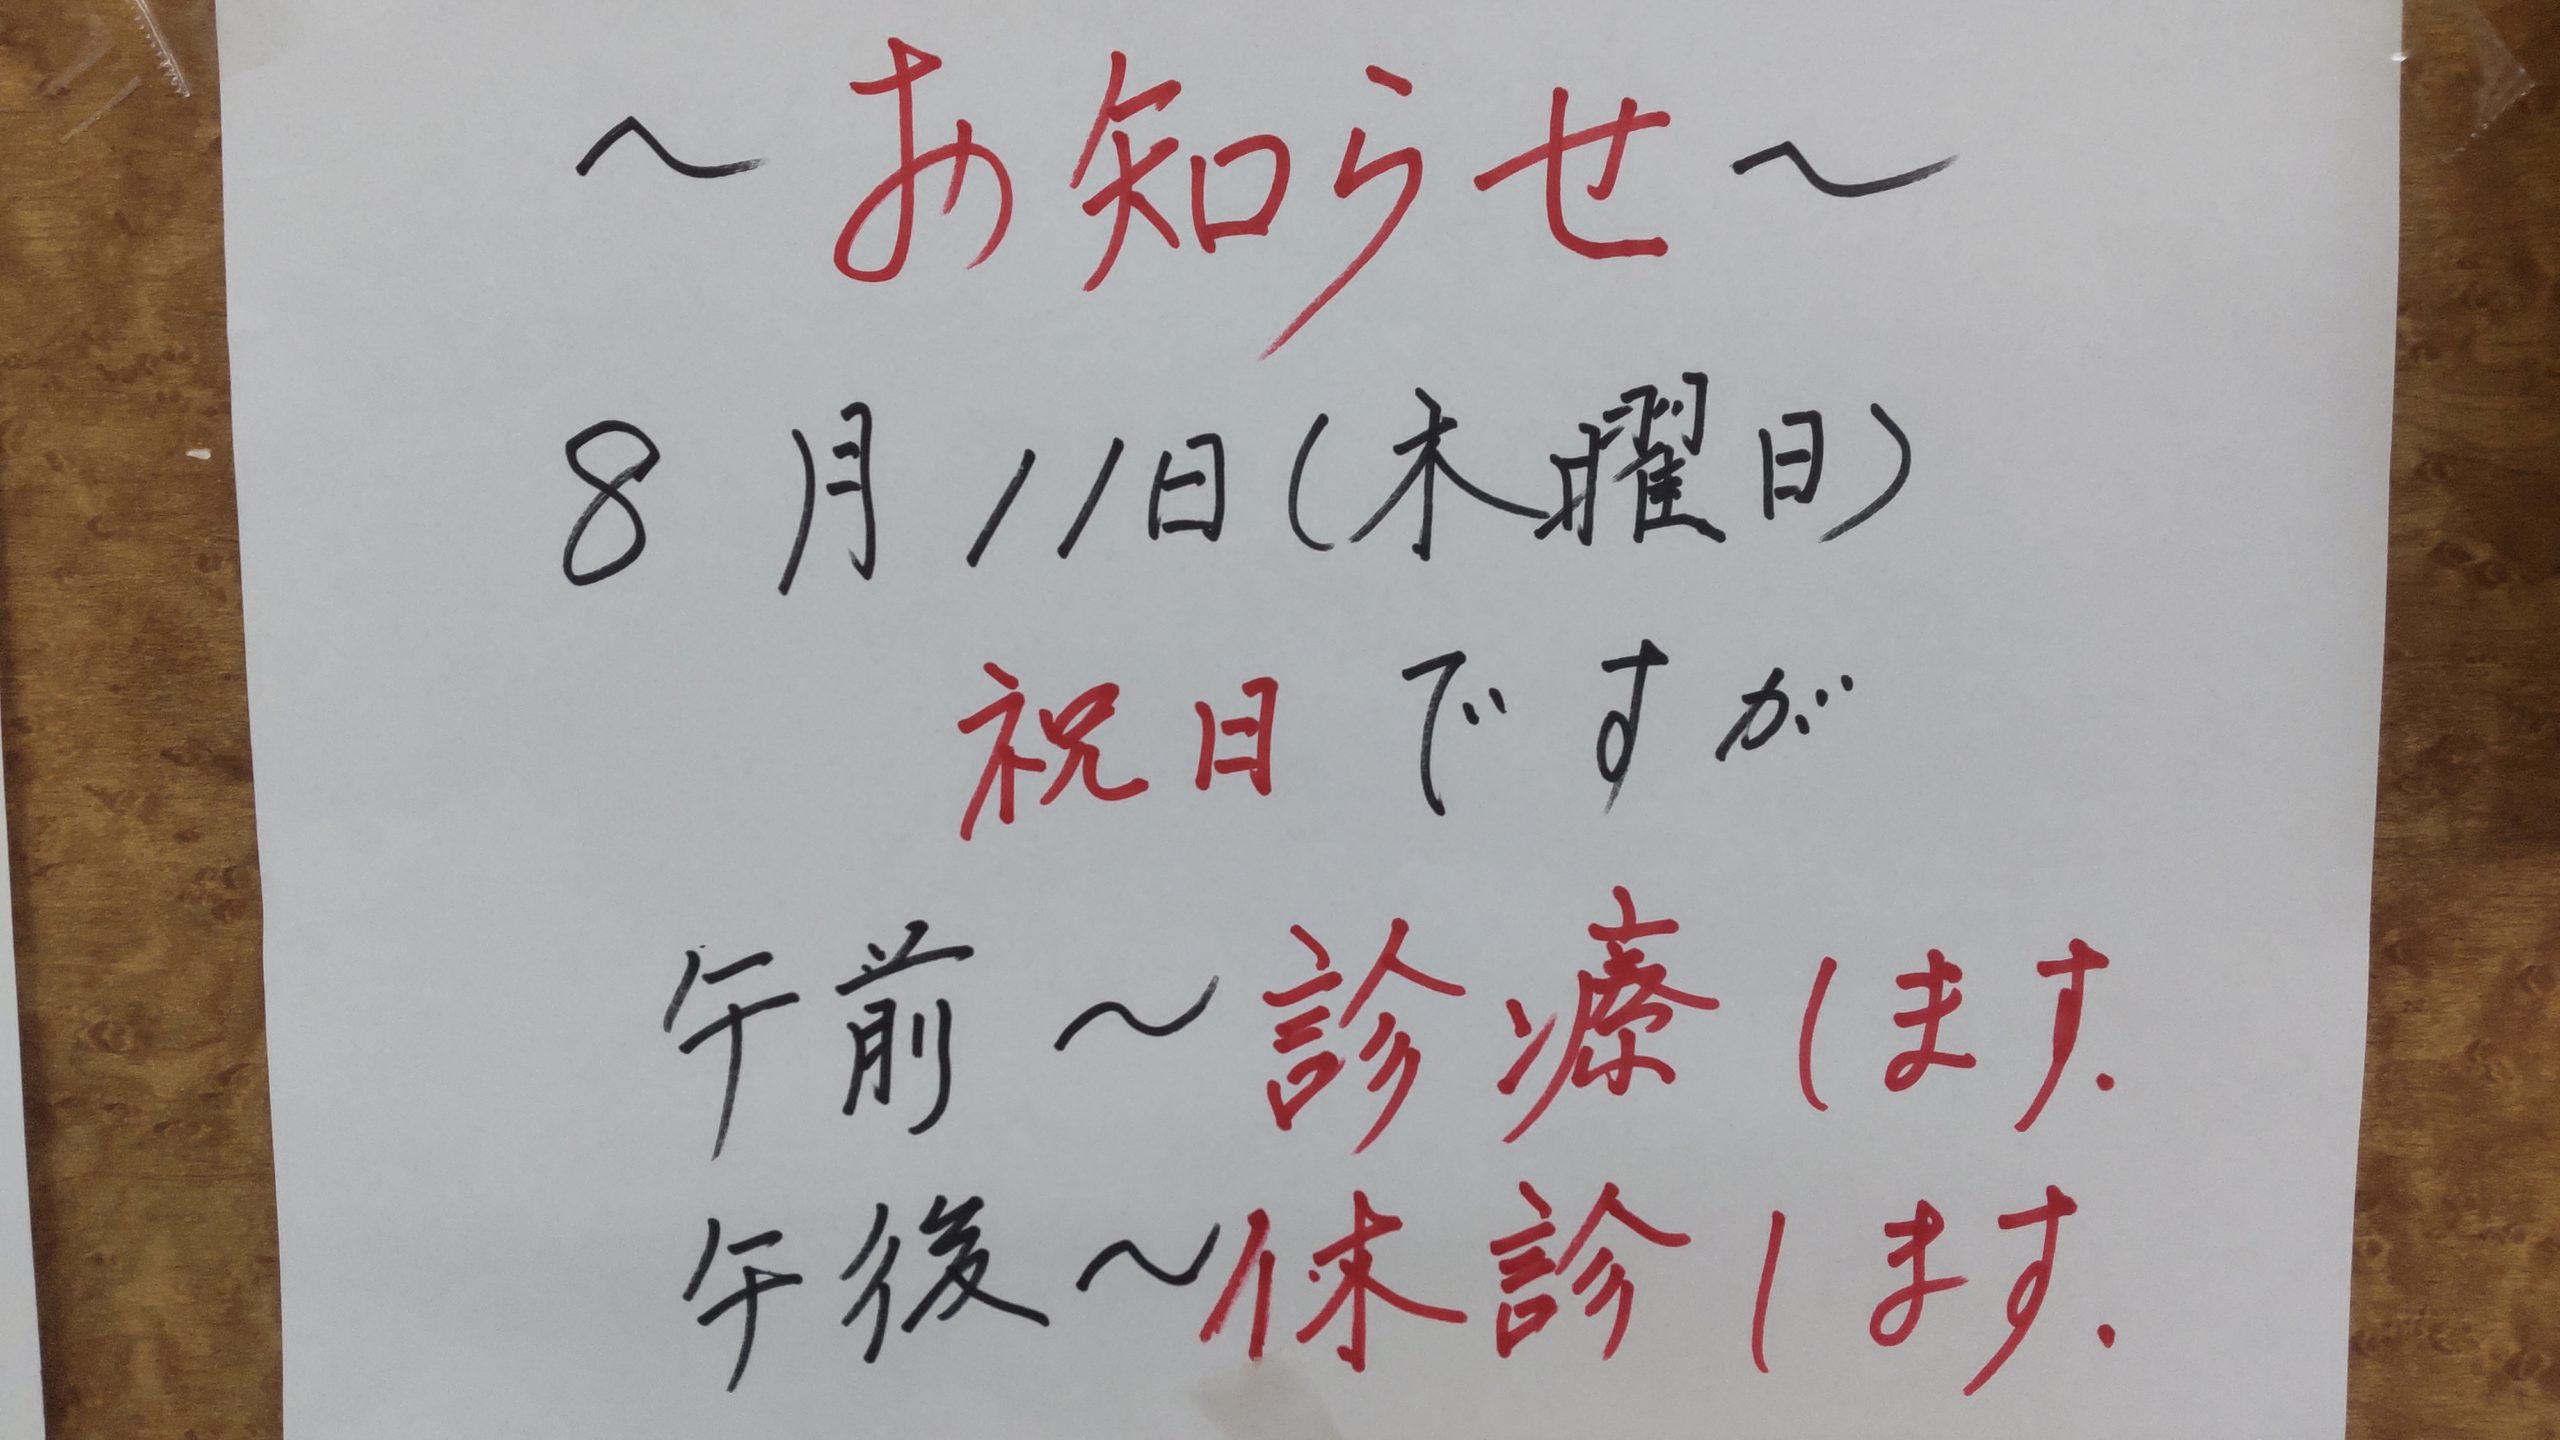 ～お知らせ～
8月11日(木曜日)
祝日ですが
午前～診療します.
午後～休診します.